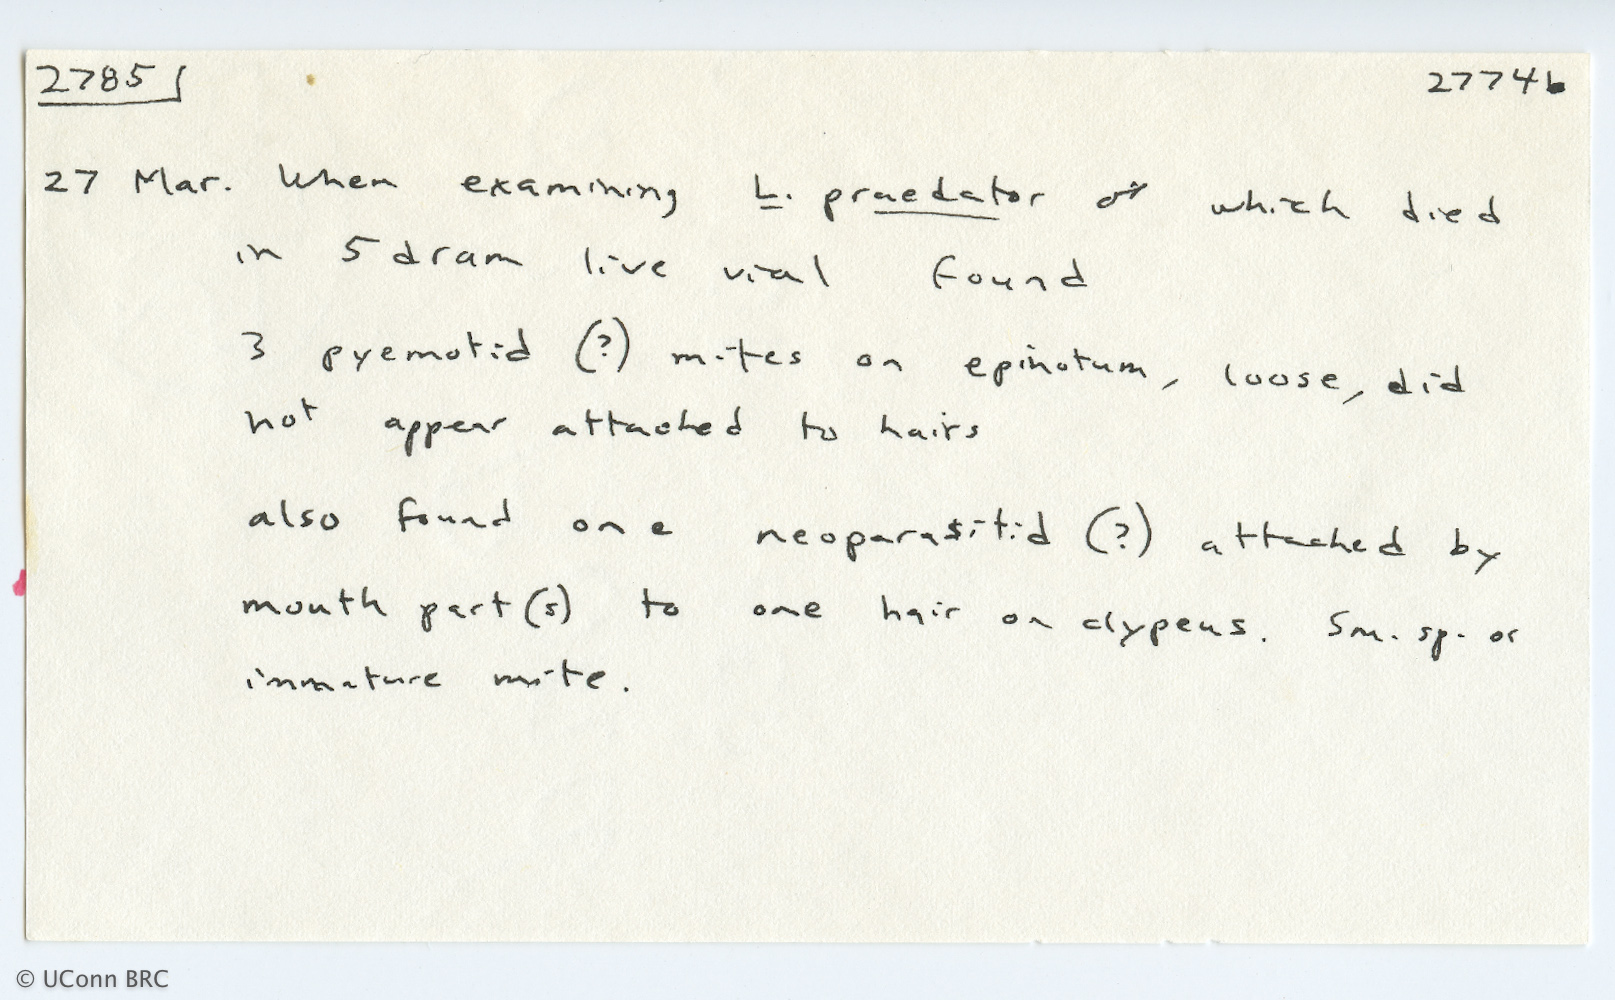 2785 27746
27 Mar. When examining L. praedator ♂ which died
in 5 dram live vial found
3 pyemotid (?) mites on epinotum, loose, did
not appear attached to hairs
also found one neoparasitid (?) attached by
mouth part(s) to one hair on clypeus. Sm. sp. or
immature mite.
© UConn BRC